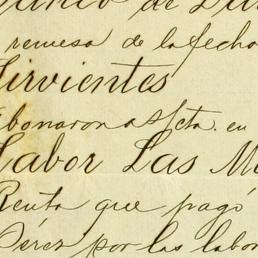 de
remesa de la fecha
Sirvientes
abonaron a s/cta. en
Labor Las M
Renta que pagó
Pérez por las labor